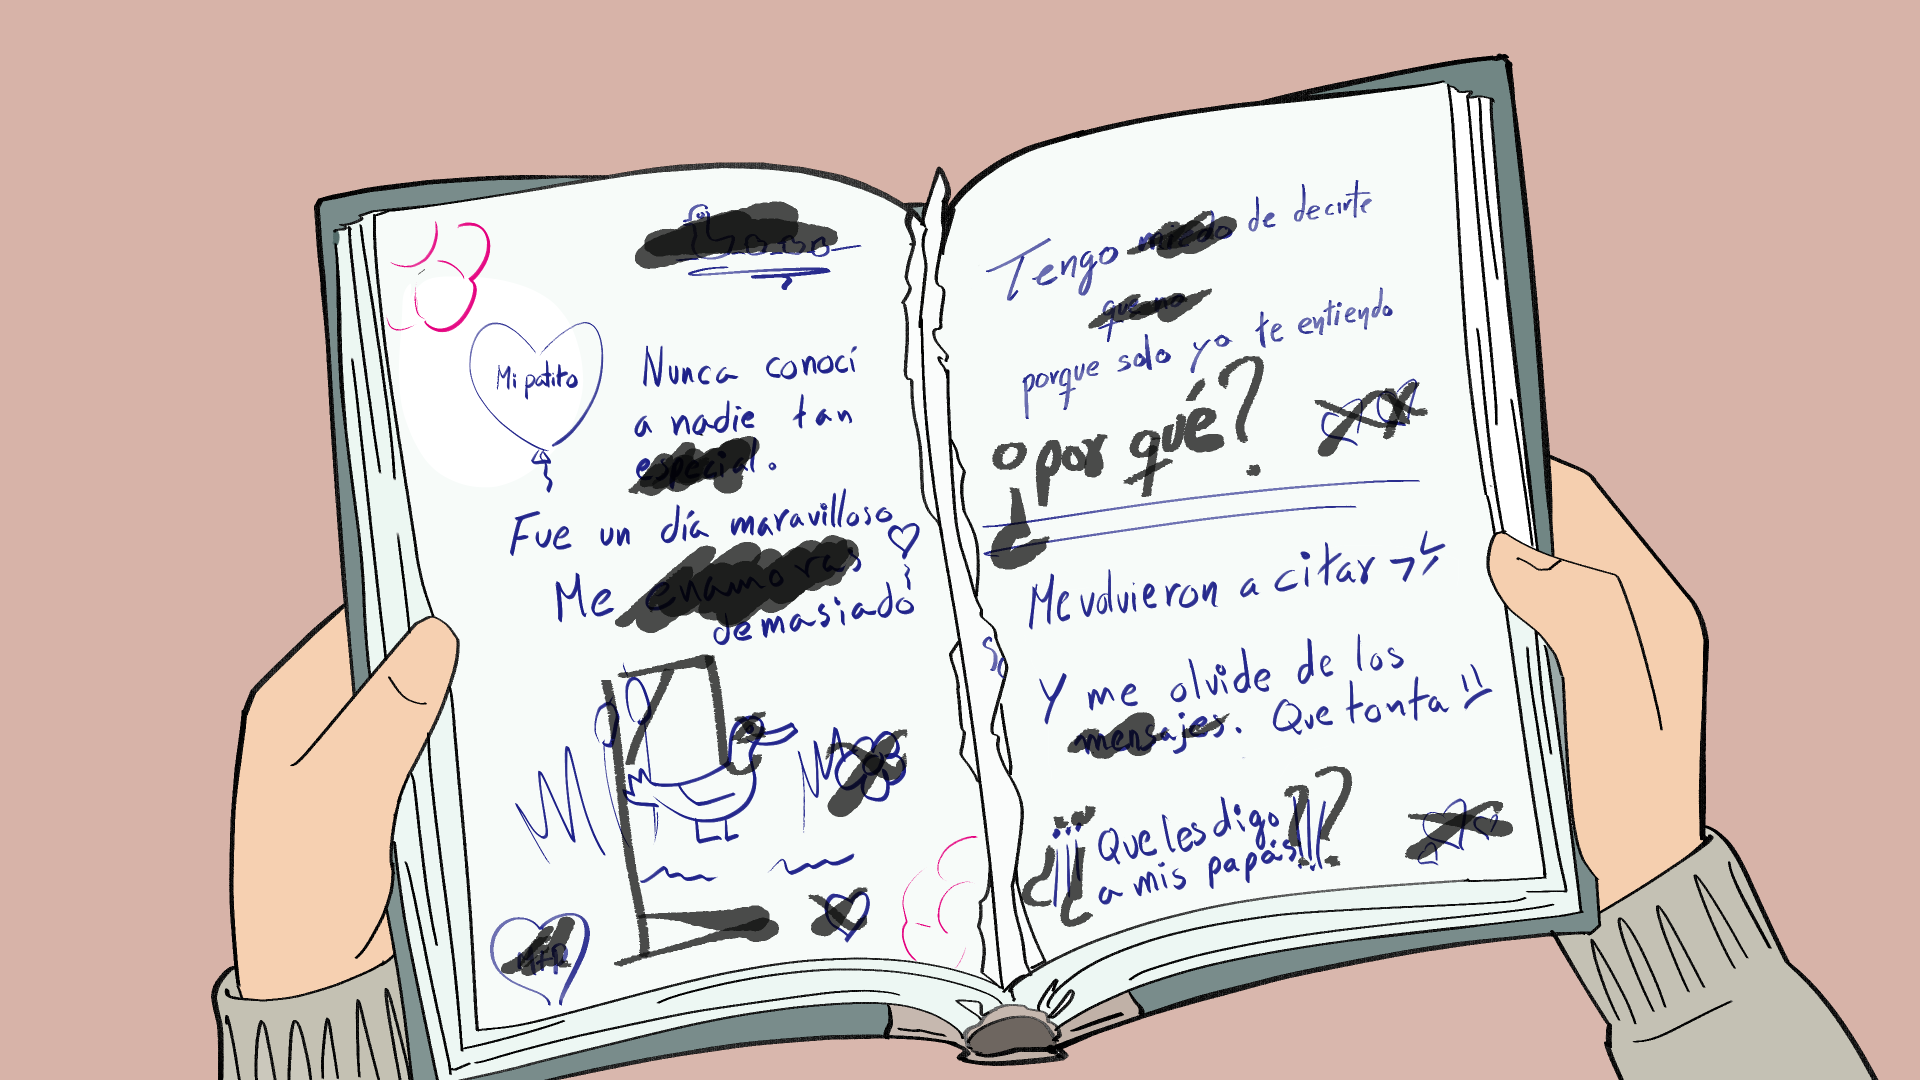 Mi patito
Nunca conocí
a nadie tan
especial.
Fue un día maravilloso
Me enamoras
demasiado
Tengo miedo de decirte
que no
porque solo yo te entiendo
¿por qué?
Me volvieron a citar
Y me olvide de los
mensajes. Que tonta
¿¡¡¡Que les digo
a mis papás!!!??